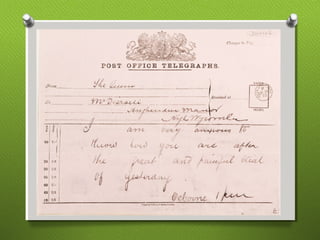 POST OFFICE TELEGRAPHS.
The Queen
Mr Disraeli
Hughenden Manor
High Wycombe
I am very anxious to
know how you are after
the great and painful trial
of yesterday
Osborne